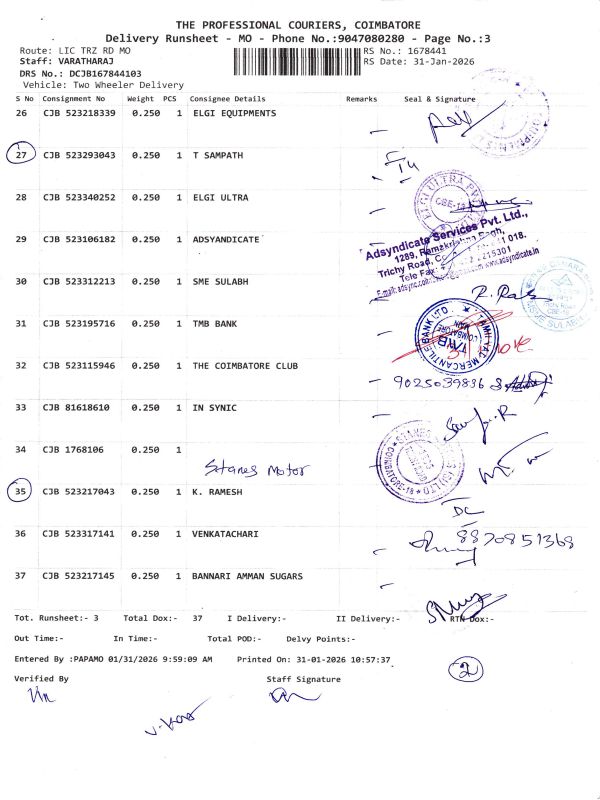 THE PROFESSIONAL COURIERS, COIMBATORE
Delivery Runsheet - MO - Phone No.:9047080280 - Page No.:3
Route: LIC TRZ RD MO RS No.: 1678441
Staff: VARATHARAJ RS Date: 31-Jan-2026
DRS No.: DCJB167844103
Vehicle: Two Wheeler Delivery
S No Consignment No Weight PCS Consignee Details Remarks Seal & Signature
26 CJB 523218339 0.250 1 ELGI EQUIPMENTS
27 CJB 523293043 0.250 1 T SAMPATH
28 CJB 523340252 0.250 1 ELGI ULTRA
ELGI ULTRA
29 CJB 523106182 0.250 1 ADSYANDICATE
Adsyndicate Services Pvt. Ltd.,
1289, Ramakrishna
Trichy Road,
30 CJB 523312213 0.250 1 SME SULABH
31 CJB 523195716 0.250 1 TMB BANK
TAMILNAD MERCANTILE BANK LTD
COIMBATORE
TMB
32 CJB 523115946 0.250 1 THE COIMBATORE CLUB
9025039836
33 CJB 81618610 0.250 1 IN SYNIC
34 CJB 1768106 0.250 1
Stanes Motor
COIMBATORE-18
35 CJB 523217043 0.250 1 K. RAMESH
DC
36 CJB 523317141 0.250 1 VENKATACHARI
8870851368
37 CJB 523217145 0.250 1 BANNARI AMMAN SUGARS
Tot. Runsheet:- 3 Total Dox:- 37 I Delivery:- II Delivery:- RTN Dox:-
Out Time:- In Time:- Total POD:- Delvy Points:-
Entered By :PAPAMO 01/31/2026 9:59:09 AM Printed On: 31-01-2026 10:57:37
2
Verified By Staff Signature